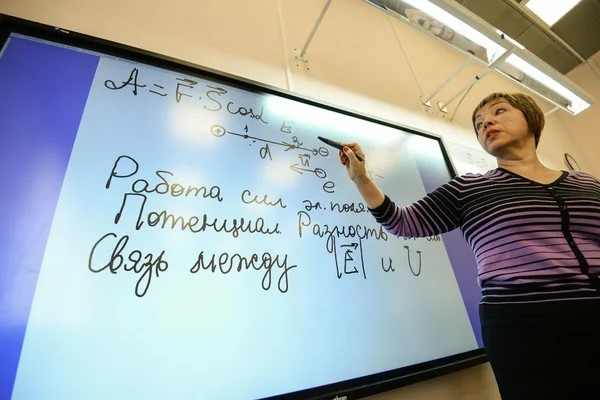 A = F · S cosα
+ 1 E 2 −
d υ
e
Работа сил эл. поля
Потенциал. Разность
Связь между |E| и U